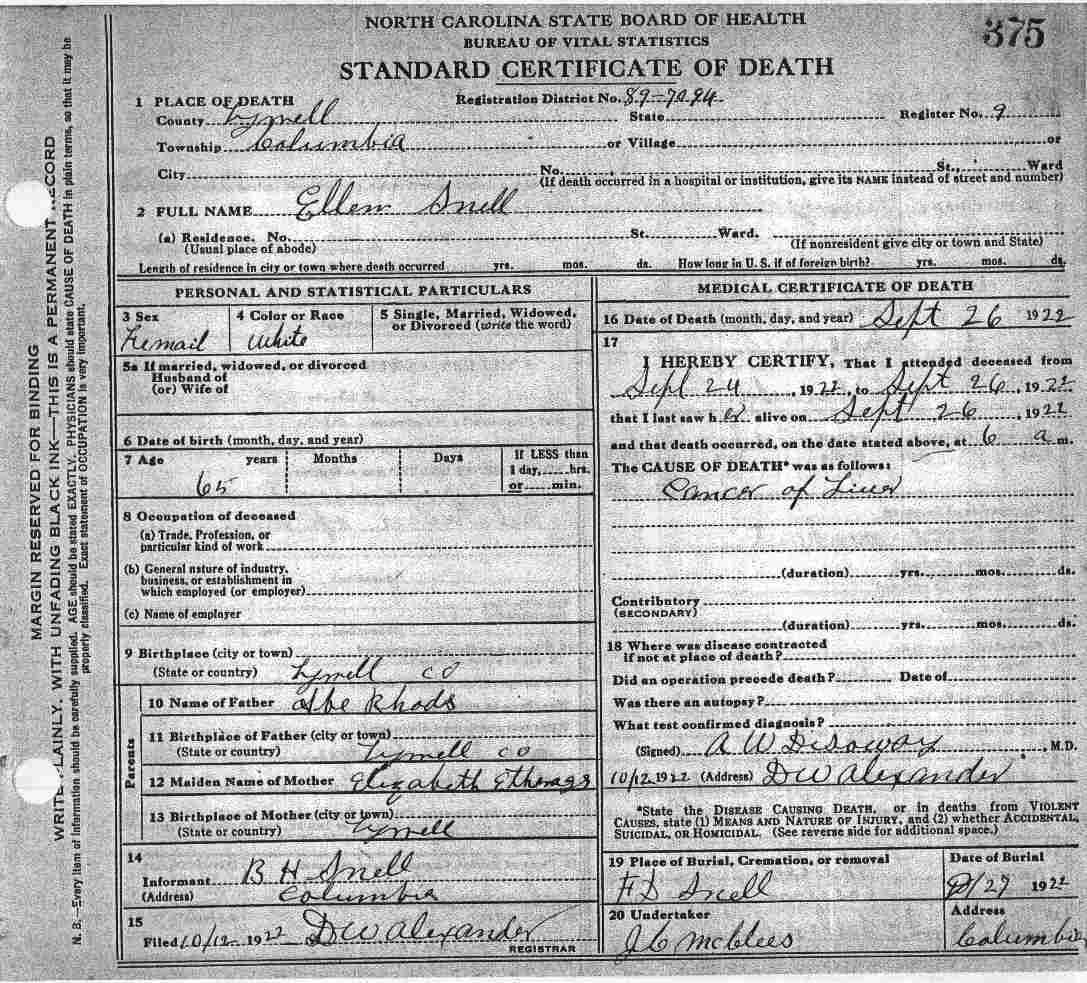 375
NORTH CAROLINA STATE BOARD OF HEALTH
BUREAU OF VITAL STATISTICS
STANDARD CERTIFICATE OF DEATH
1 PLACE OF DEATH Registration District No. 89-7094
County Tyrrell State Register No. 9
Township Columbia or Village or
City No. St., Ward
(If death occurred in a hospital or institution, give its NAME instead of street and number)
2 FULL NAME Ellen Snell
(a) Residence. No. St. Ward.
(Usual place of abode) (If nonresident give city or town and State)
Length of residence in city or town where death occurred yrs. mos. ds. How long in U. S. if of foreign birth? yrs. mos. ds.
PERSONAL AND STATISTICAL PARTICULARS
3 Sex 4 Color or Race 5 Single, Married, Widowed,
or Divorced (write the word)
Femail White
5a If married, widowed, or divorced
Husband of
(or) Wife of
6 Date of birth (month, day, and year)
7 Age years Months Days If LESS than
1 day, hrs.
65 or min.
8 Occupation of deceased
(a) Trade, Profession, or
particular kind of work
(b) General nature of industry,
business, or establishment in
which employed (or employer)
(c) Name of employer
9 Birthplace (city or town)
(State or country) Tyrrell co
Parents
10 Name of Father Abe Rhods
11 Birthplace of Father (city or town)
(State or country) Tyrrell co
12 Maiden Name of Mother Elizabeth
13 Birthplace of Mother (city or town)
(State or country) Tyrrell
14
Informant B H Snell
(Address) Columbia
15
Filed 10/12 1922 D W Alexander
REGISTRAR
MEDICAL CERTIFICATE OF DEATH
16 Date of Death (month, day, and year) Sept 26 1922
17
I HEREBY CERTIFY, That I attended deceased from
Sept 24, 1922, to Sept 26, 1922
that I last saw h er alive on Sept 26, 1922
and that death occurred, on the date stated above, at 6 a m.
The CAUSE OF DEATH* was as follows:
Cancer of Liver
(duration) yrs. mos. ds.
Contributory
(SECONDARY)
(duration) yrs. mos. ds.
18 Where was disease contracted
if not at place of death?
Did an operation precede death? Date of
Was there an autopsy?
What test confirmed diagnosis?
(Signed) A W Disoway, M.D.
10/12 1922 (Address) D W Alexander
*State the DISEASE CAUSING DEATH, or in deaths from VIOLENT
CAUSES, state (1) MEANS AND NATURE OF INJURY, and (2) whether ACCIDENTAL,
SUICIDAL, OR HOMICIDAL. (See reverse side for additional space.)
19 Place of Burial, Cremation, or removal Date of Burial
F D Snell 9/27 1922
20 Undertaker Address
J C McClees Columbia
MARGIN RESERVED FOR BINDING
WRITE PLAINLY, WITH UNFADING BLACK INK—THIS IS A PERMANENT RECORD
N. B.—Every item of information should be carefully supplied. AGE should be stated EXACTLY. PHYSICIANS should state CAUSE OF DEATH in plain terms, so that it may be
properly classified. Exact statement of OCCUPATION is very important.